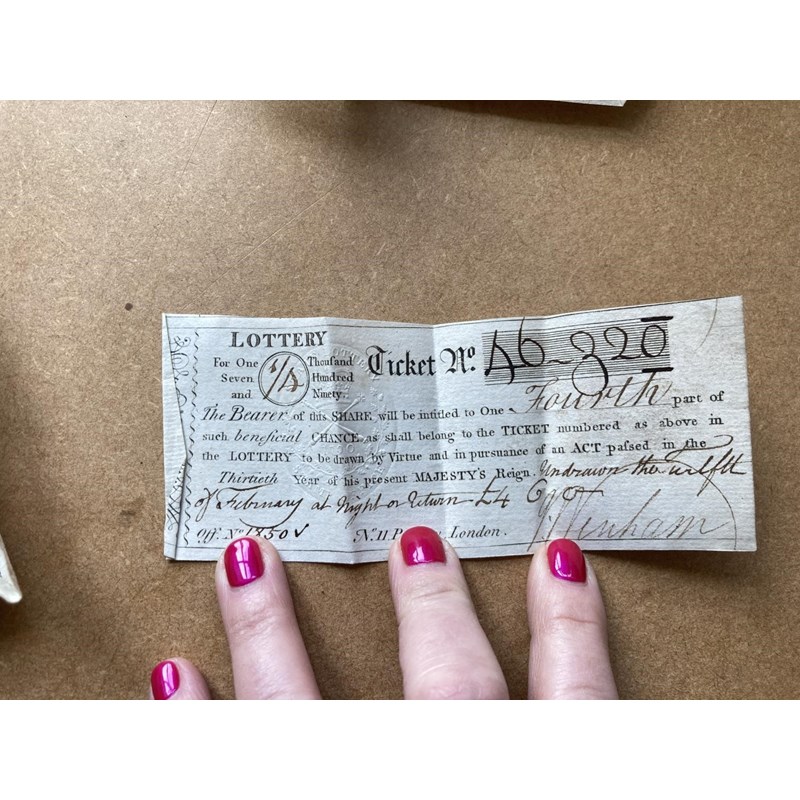 LOTTERY
For One 1/4 Thousand
Seven Hundred
and Ninety.
Ticket No. 46-320
The Bearer of this SHARE will be intitled to One Fourth part of
such beneficial CHANCE as shall belong to the TICKET numbered as above in
the LOTTERY to be drawn by Virtue and in pursuance of an ACT passed in the
Thirtieth Year of his present MAJESTY'S Reign. Undrawn the Twelfth
of February at Night or Return £4
Off. No 1850 N. 11 London.